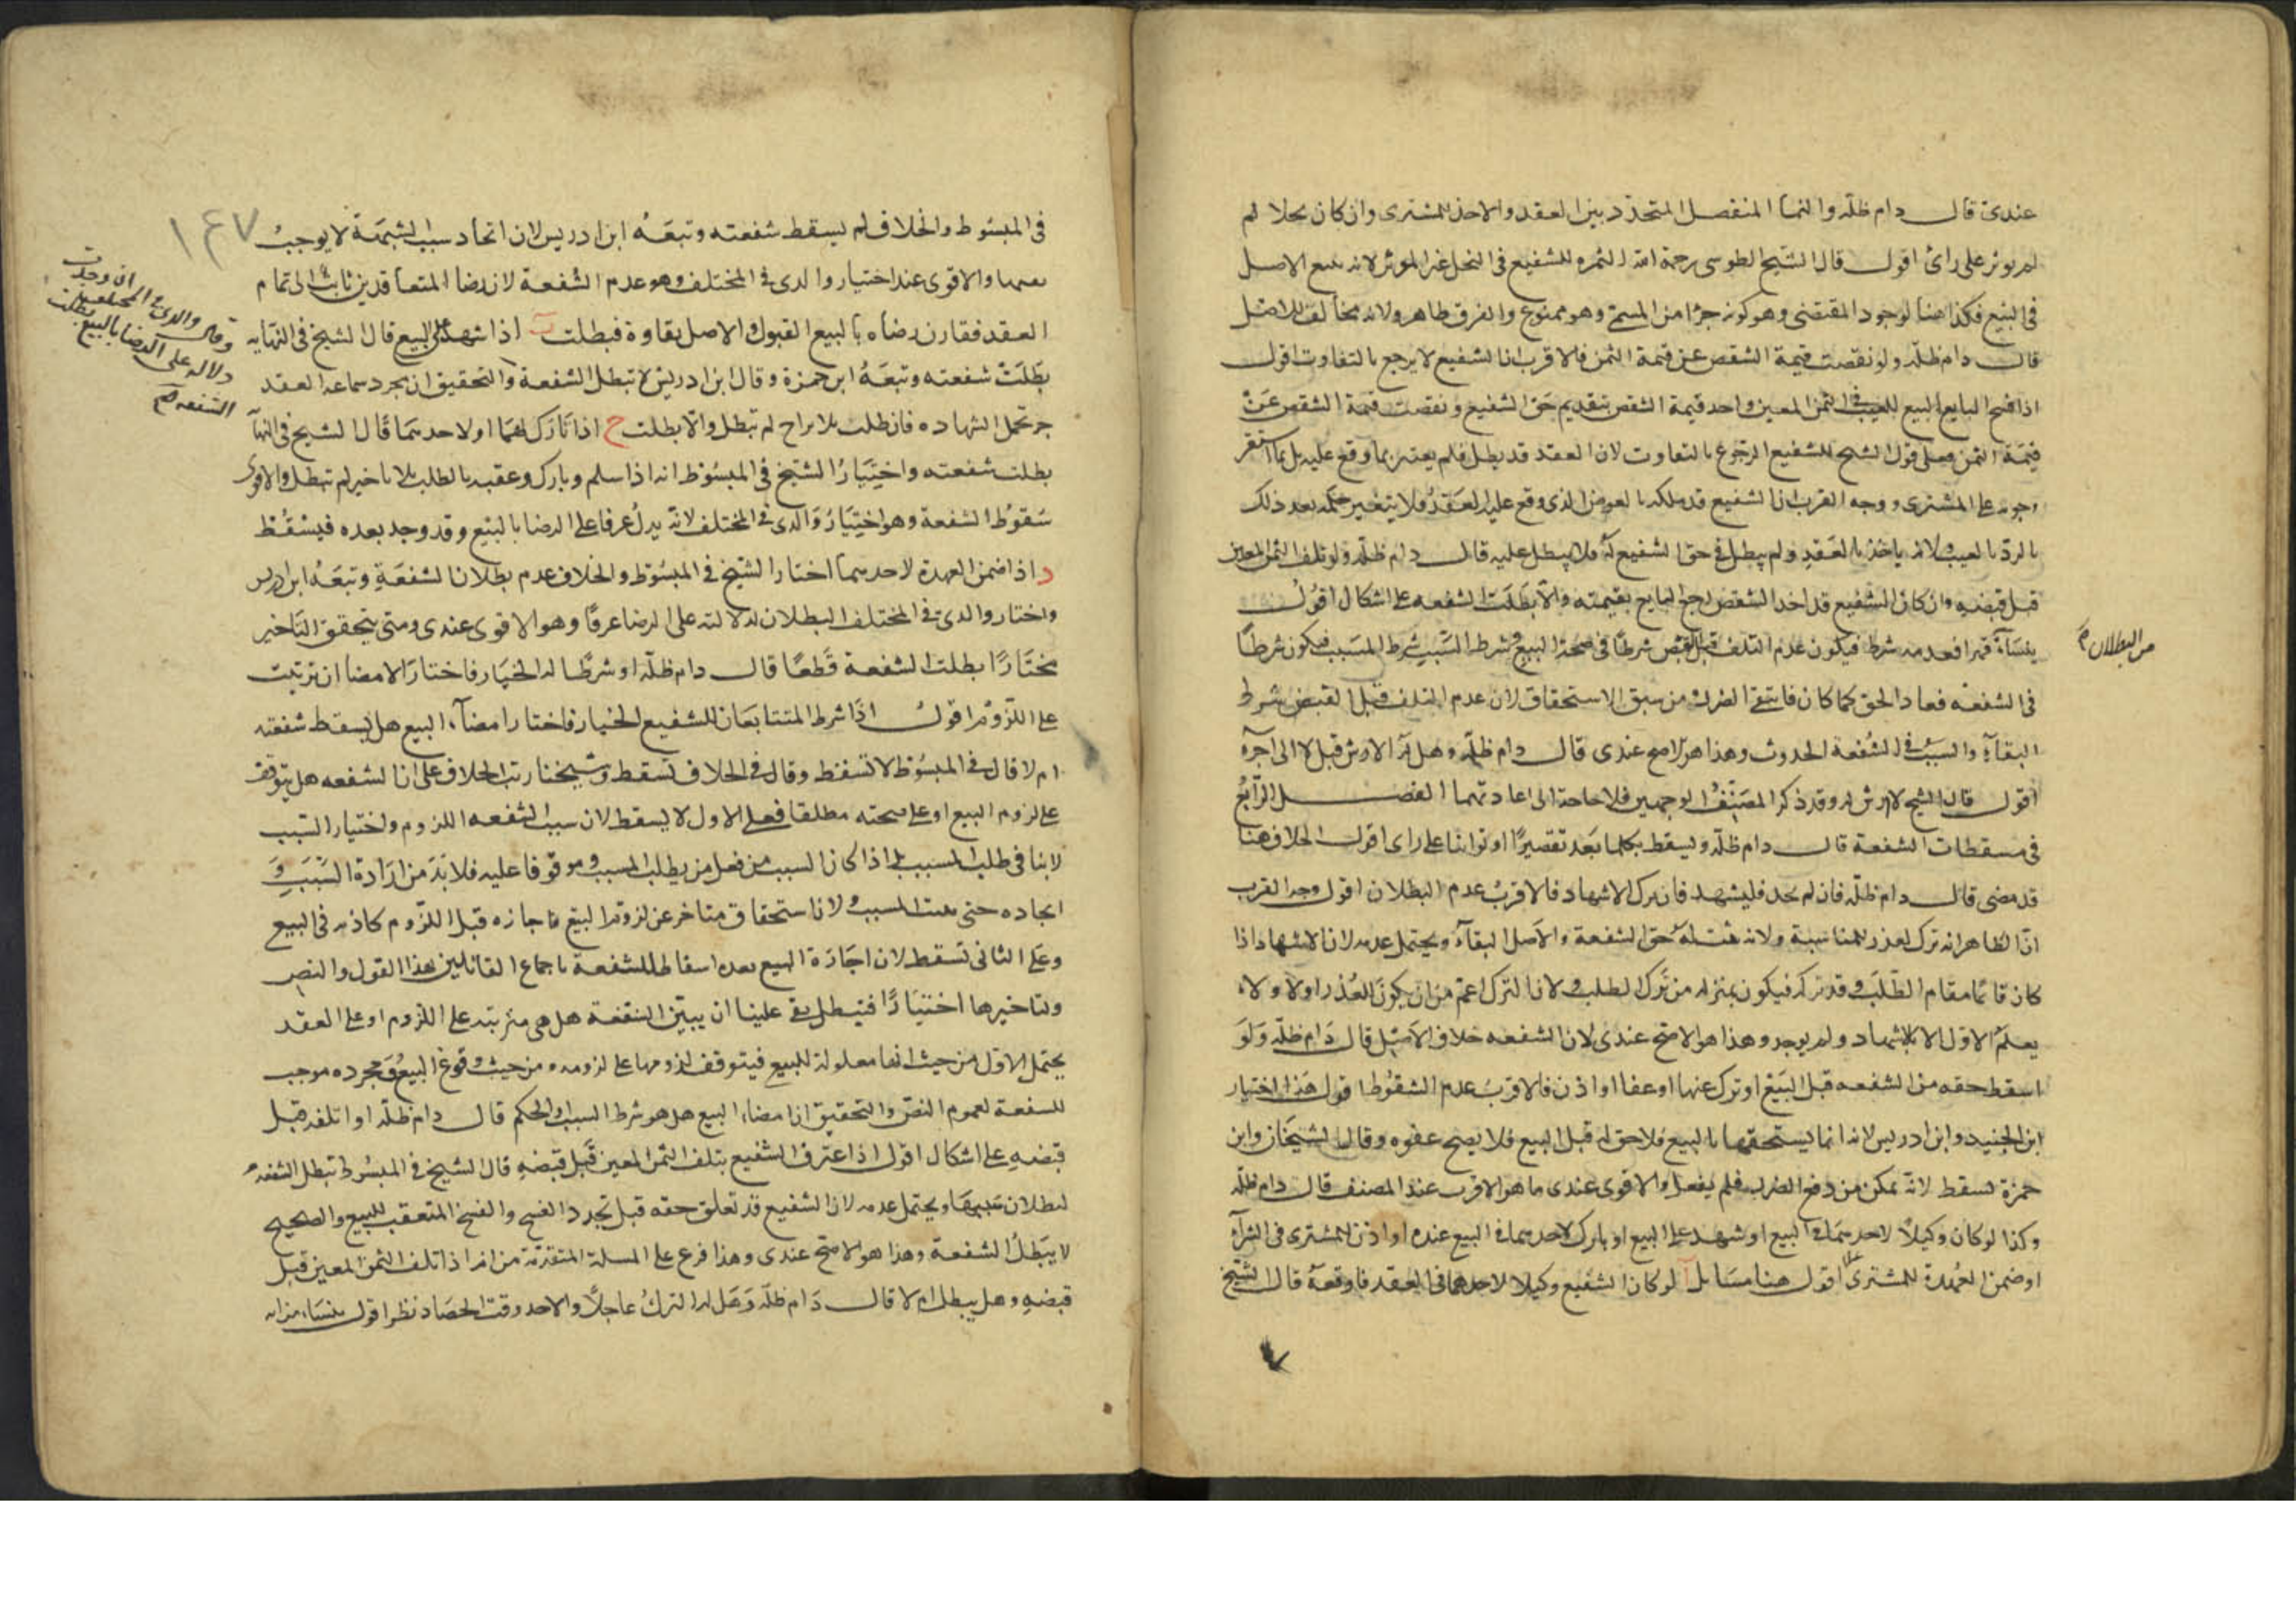 عندى قال دام ظله والنما المنفصل المتجدد بين العقد والاخذ للمشترى وان كان نخلا لم
لم يوبر على رائ اقول قال الشيخ الطوسى رحمة الله الثمره للشفيع فى النخل غير الموبر لانه يتبع الاصل
فى البيع فكذا هنا لوجود المقتضى وهو كونه جزا من المسمى وهو ممنوع والفرق ظاهر ولانه مخالف للاصل
قال دام ظله ولو نقصت قيمة الشقص عن قيمة الثمن فالاقرب ان الشفيع لا يرجع بالتفاوت اقول
اذا فسخ البايع البيع للعيب فى الثمن المعين واخد قيمة الشقص بتقديم حق الشفيع ونقصت قيمة الشقص عن
قيمة الثمن فعلى قول الشيخ للشفيع الرجوع بالتفاوت لان العقد قد بطل فلم يعتبر بما وقع عليه بل بما استقر
وجوبه على المشترى ووجه القرب ان الشفيع قد ملكه بالعوض الذى وقع عليه العقد فلا يتغير حكمه بعد ذلك
بالرد بالعيب لانه ياخذ بالعقد ولم يبطل فى حق الشفيع له فلا يبطل عليه قال دام ظله ولو تلف الثمن المعين
قبل قبضه وان كان الشفيع قد اخد الشقص رجع البايع بقيمته والا بطلت الشفعه على اشكال اقول
ينشأ فعدمه شرط فيكون عدم التلف قبل القبض شرطا فى صحة البيع وشرط السبب شرط المسبب فيكون شرطا
من البطلان صح
فى الشفعه فعاد الحق كما كان فانتفى الضرر ومن سبق الاستحقاق لان عدم التلف قبل القبض شرط
البقآء والسبب فى الشفعة الحدوث وهذا هو الاصح عندى قال دام ظله وهل له الارش قبل لا الى اخره
اقول قال الشيخ لا ارش له وقد ذكر المصنف الوجهين فلا حاجة الى اعادتهما الفصل الرابع
فى مسقطات الشفعة قال دام ظله ويسقط بكلما يعد تقصيرا او توانيا على راى اقول الخلاف هنا
قد مضى قال دام ظله فان لم يجد فليشهد فان ترك الاشهاد فالاقرب عدم البطلان اقول وجه القرب
ان الظاهر انه ترك لعذر للمناسبة ولانه ثبت له حق الشفعة والاصل البقآء ويحتمل عدمه لان الاشهاد اذا
كان قائما مقام الطلب وقد تركه فيكون بمنزله من ترك الطلب ولان الترك اعم من ان يكون للعذر اولا ولا
يعلم الاول الا بالاشهاد ولم يوجد وهذا هو الاصح عندى لان الشفعه خلاف الاصل قال دام ظله ولو
اسقط حقه من الشفعه قبل البيع او ترك عنها او عفا او اذن فالاقرب عدم السقوط اقول هذا اختيار
ابن الجنيد وابن ادريس لانه انما يستحقها بالبيع فلا حق له قبل البيع فلا يصح عفوه وقال الشيخان وابن
حمزة تسقط لانه تمكن من دفع الضرر فلم يفعل والاقوى عندى ما هو الاقرب عند المصنف قال دام ظله
وكذا لو كان وكيلا لاحدهما فى البيع او شهد على البيع او بارك لاحدهما فى البيع عنده او اذن للمشترى فى الشرآء
او ضمن العهدة للمشترى اقول هنا مسائل آ لو كان الشفيع وكيلا لاحدهما فى العقد فاوقعه قال الشيخ
١٤٧
فى المبسوط والخلاف لم يسقط شفعته وتبعه ابن ادريس لان اتحاد سبب الشبهة لا يوجب
نفيها والاقوى عند اختيار والدى فى المختلف وهو عدم الشفعة لان رضا المتعاقدين ثابت الى تمام
العقد فقارن رضاه بالبيع القبول والاصل بقاوه فبطلت ب اذا شهد على البيع قال الشيخ فى النهايه
بطلت شفعته وتبعه ابن حمزة وقال ابن ادريس لا تبطل الشفعة والتحقيق ان بمجرد سماعه العقد
وقال والدى فى المختلف ان وجدت
دلاله على الرضا بالبيع بطلت
الشفعه صح
جو تحمل الشهاده فان طلب بلا تراخ لم تبطل والا بطلت ج اذا تارك لهما او لاحدهما قال الشيخ فى النهآ
بطلت شفعته واختيار الشيخ فى المبسوط انه اذا سلم وبارك وعقبه بالطلب بلا تاخير لم تبطل والاقوى
سقوط الشفعة وهو اختيار والدى فى المختلف لانه يدل عرفا على الرضا بالبيع وقد وجد بعده فيسقط
د اذا ضمن العهدة لاحدهما اختار الشيخ فى المبسوط والخلاف عدم بطلان الشفعة وتبعه ابن ادريس
واختار والدى فى المختلف البطلان لدلالته على الرضا عرفا وهو الاقوى عندى ومتى يتحقق التاخير
مختارا بطلت الشفعة قطعا قال دام ظله او شرطا له الخيار فاختار الامضا ان ترتبت
على اللزوم اقول اذا شرط المتبايعان للشفيع الخيار فاختار امضآء البيع هل يسقط شفعته
ام لا قال فى المبسوط لا تسقط وقال فى الخلاف تسقط وشيخنا رتب الخلاف على ان الشفعه هل يتوقف
على لزوم البيع او على صحته مطلقا فعلى الاول لا يسقط لان سبب الشفعه اللزوم واختيار السبب
لا ينافى طلب المسبب بل اذا كان السبب من فعل من يطلب المسبب وموقوفا عليه فلا بد من ارادة السبب و
ايجاده حتى يثبت المسبب ولان استحقاق متاخر عن لزوم البيع فاجازه قبل اللزوم كاذنه فى البيع
وعلى الثانى تسقط لان اجازة البيع بعده اسقاط للشفعة باجماع القائلين بهذا القول والنص
ولتاخيرها اختيارا فتبطل بقى علينا ان يبين الشفعة هل هى مترتبه على اللزوم او على العقد
يحتمل الاول من حيث انها معلولة للبيع فيتوقف لزومها على لزومه ومن حيث وقوع البيع ومجرده موجب
للشفعة لعموم النص والتحقيق ان امضاء البيع هل هو شرط السبب او الحكم قال دام ظله او اتلف قبل
قبضه على اشكال اقول اذا اعترف الشفيع بتلف الثمن المعين قبل قبضه قال الشيخ فى المبسوط تبطل الشفعه
لبطلان سببها ويحتمل عدمه لان الشفيع قد تعلق حقه قبل تجدد الفسخ والفسخ المتعقب للبيع والصحيح
لا يبطل الشفعة وهذا هو الاصح عندى وهذا فرع على المسلة المتقدمة من انه اذا تلف الثمن المعين قبل
قبضه وهل يبطل ام لا قال دام ظله وهل له الترك عاجلا والاخد وقت الحصاد نظر اقول ينشاء من انه